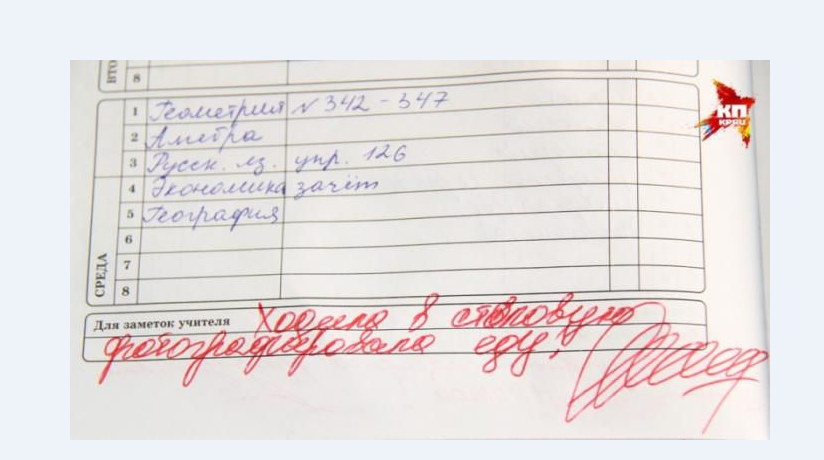 ВТО
8
СРЕДА
1 Геометрия № 342 - 347
2 Алгебра
3 Русск. яз. упр. 126
4 Экономика зачёт
5 География
6
7
8
Для заметок учителя Ходила в столовую
фотографировала еду!
КП